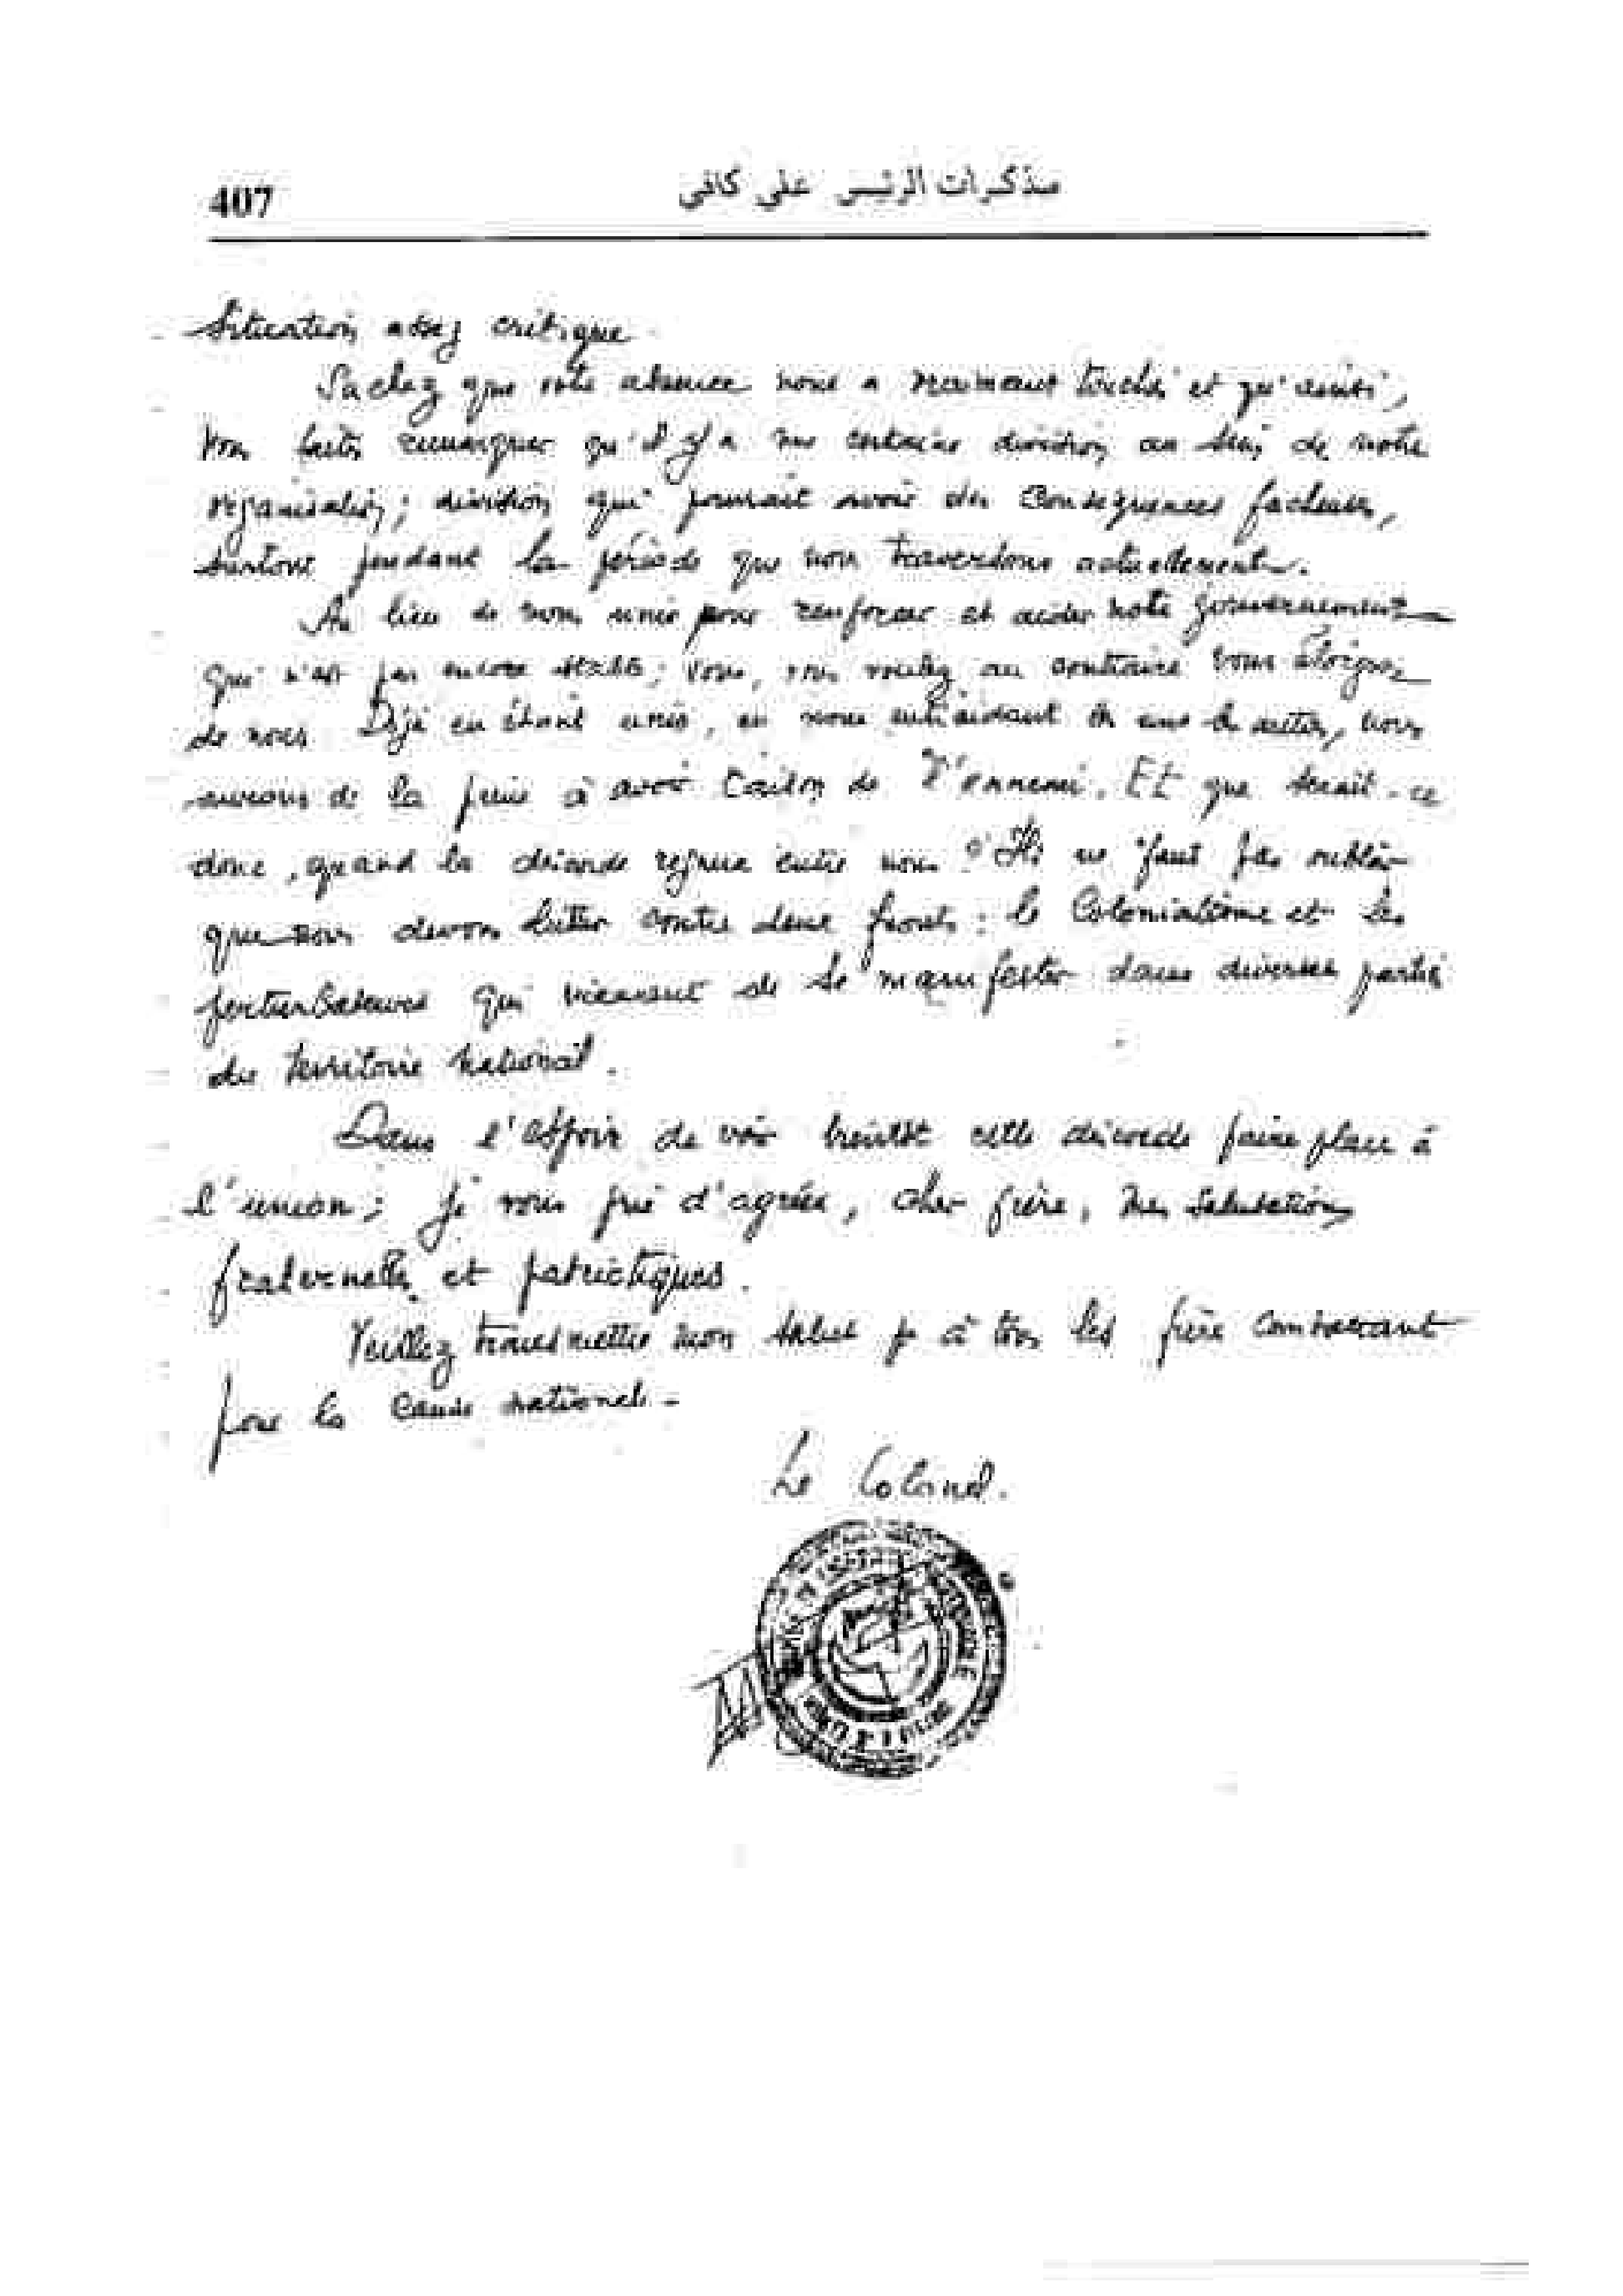 407
مذكرات الرئيس علي كافي
Situation assez critique
Sachez que votre absence nous a vraiment touché et qu'ainsi,
vous faites remarquer qu'il y a une certaine division au sein de notre
organisation ; division qui pourrait avoir des conséquences facheuses,
surtout pendant la période que nous traversons actuellement.
Au lieu de nous unir pour renforcer et aider notre gouvernement
qui n'est pas encore stable ; vous, vous voulez au contraire vous éloigner
de nous. Déjà en étant unis, en nous entraidant les uns les autres, nous
aurons de la peine à avoir raison de l'ennemi. Et que serait-ce
donc, quand la discorde regnera entre nous ? Il ne faut pas oublier
que nous devons lutter contre deux fronts : le Colonialisme et les
perturbateurs qui viennent de se manifester dans diverses parties
du territoire national.
Dans l'espoir de voir bientôt cette discorde faire place à
l'union ; je vous prie d'agréer, cher frère, mes salutations
fraternelles et patriotiques.
Veuillez transmettre mon salut à tous les frère combattant
pour la cause nationale.-
Le Colonel.